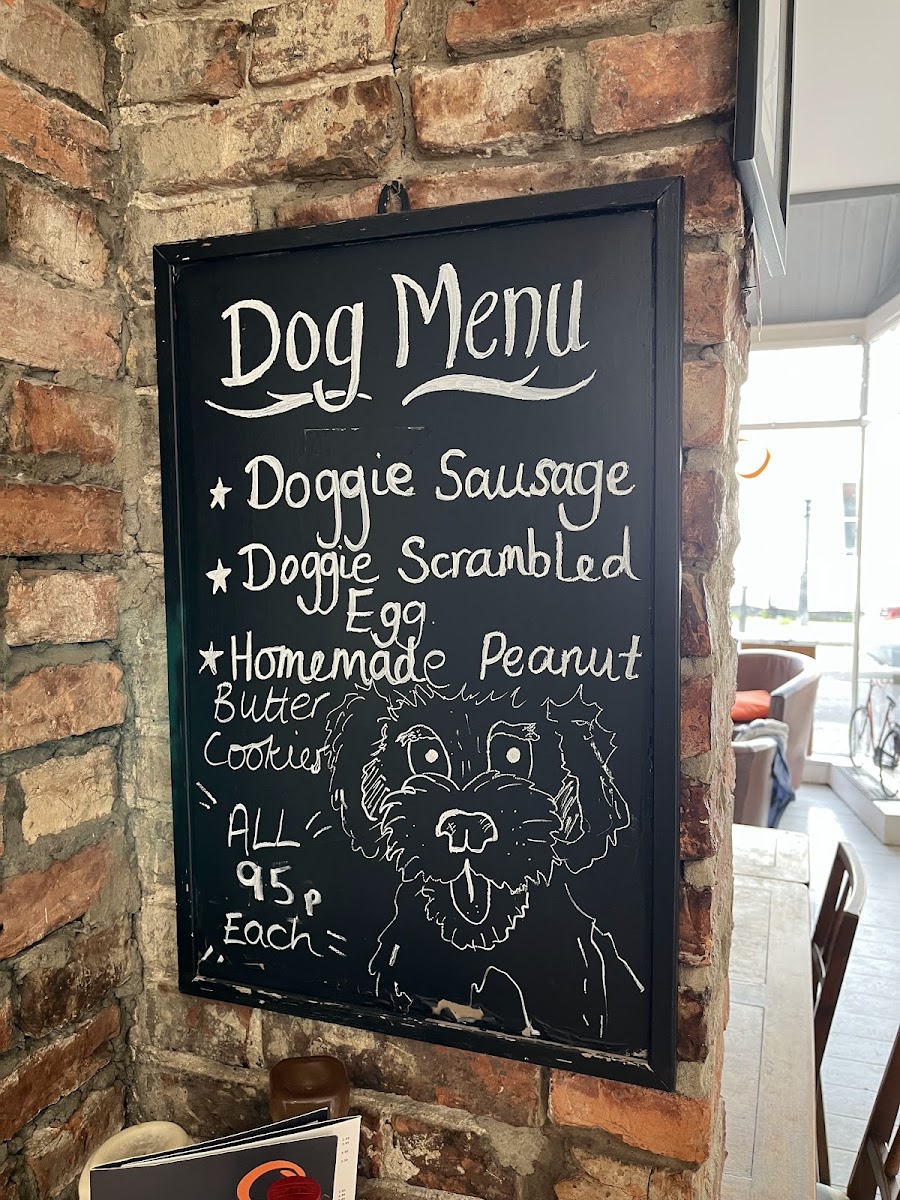 Dog Menu
Doggie Sausage
Doggie Scrambled
Egg
Homemade Peanut
Butter
Cookies
ALL
95p
Each